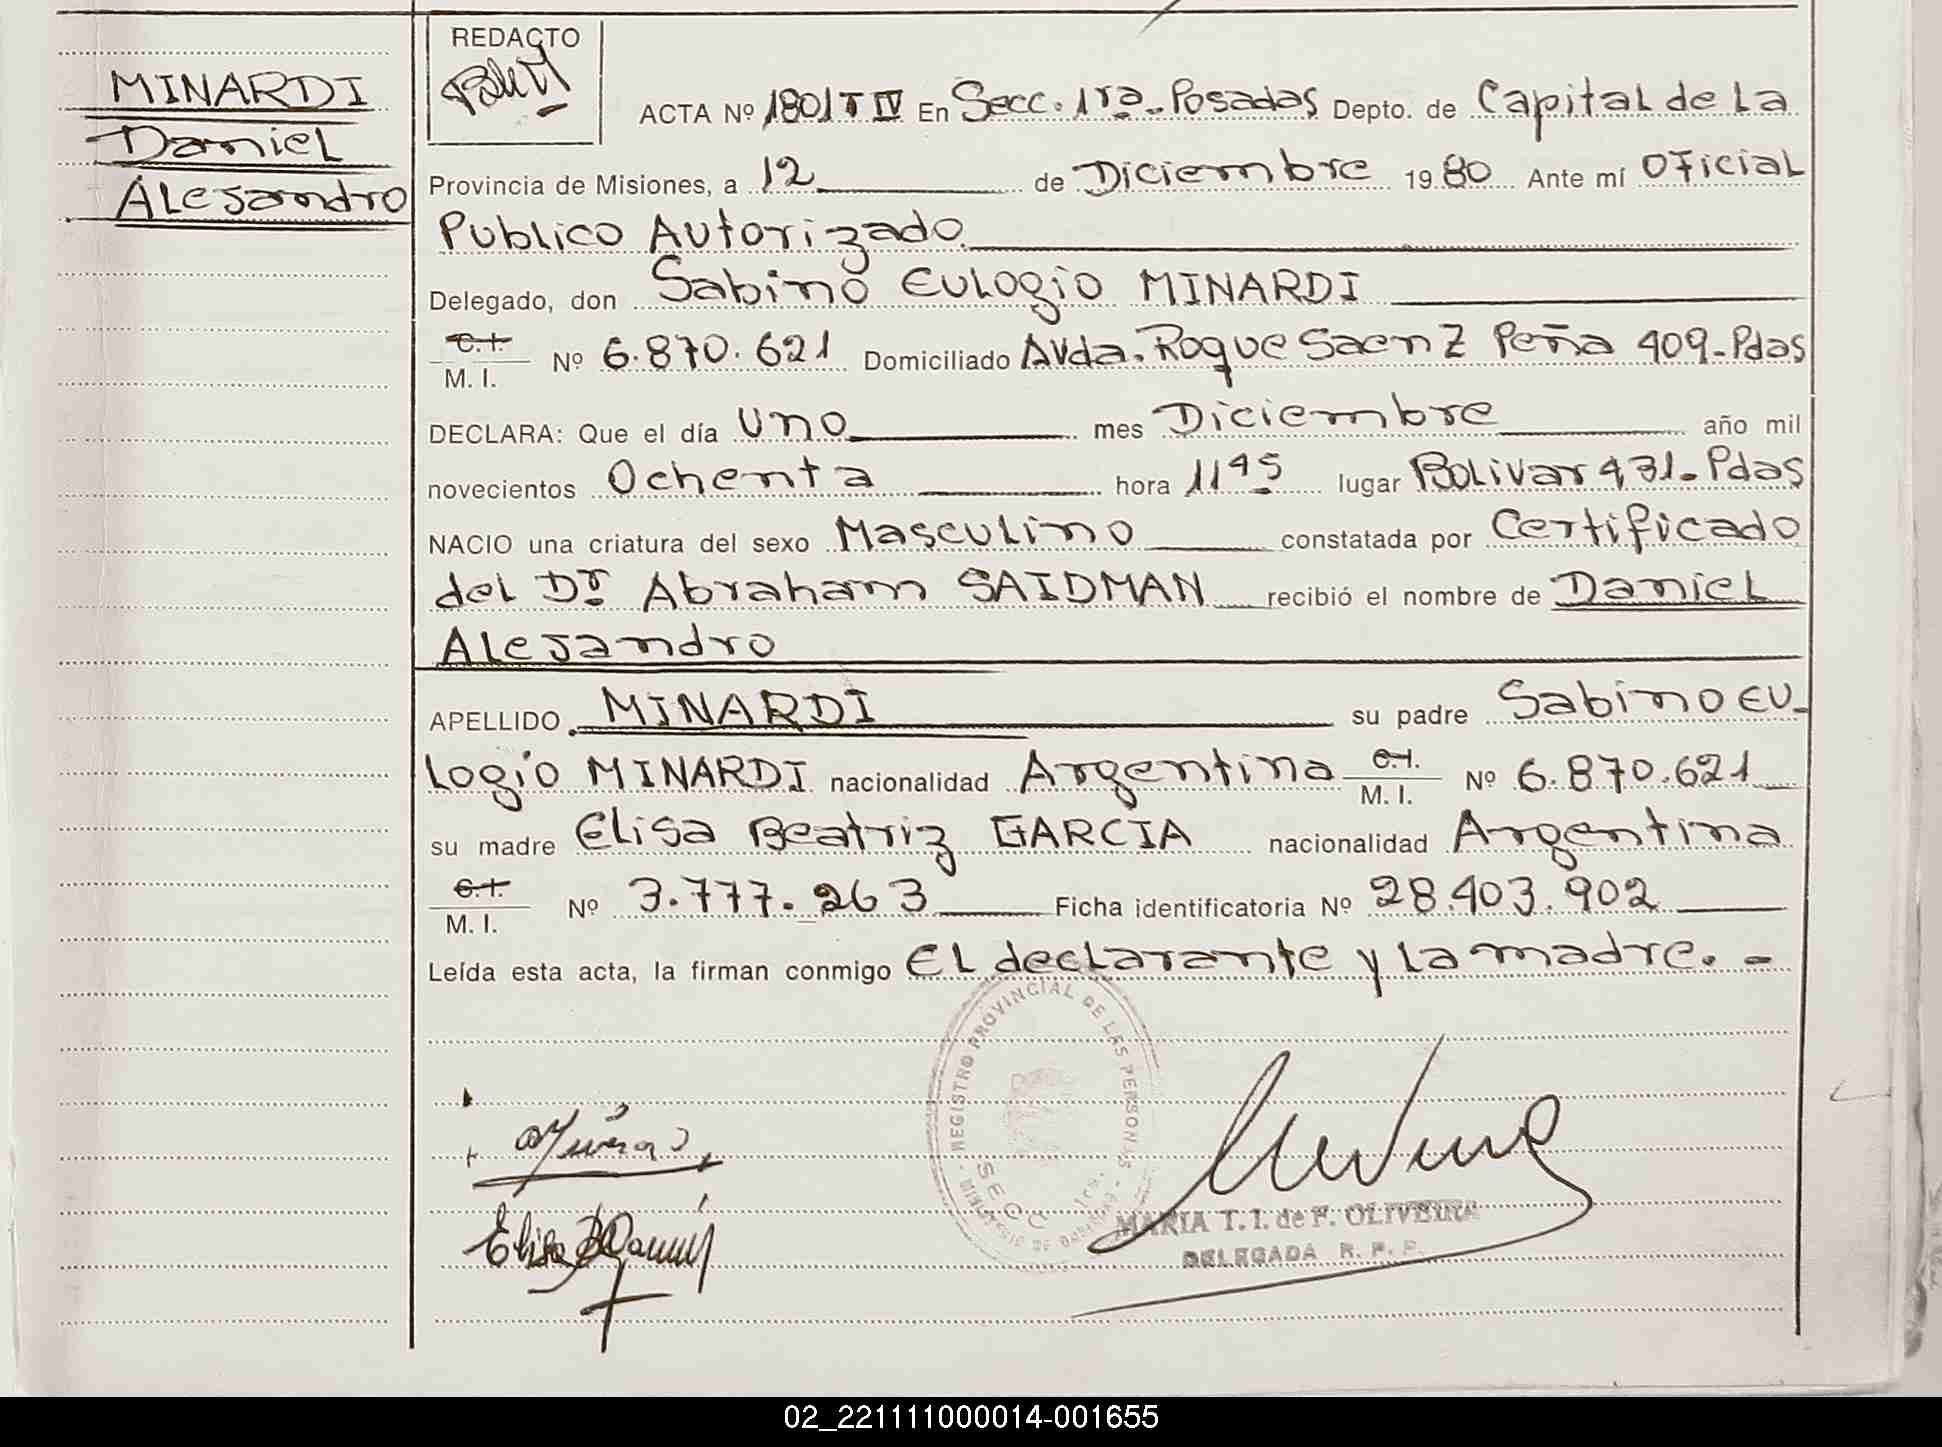 MINARDI
Daniel
Alejandro
REDACTO
ACTA Nº 1801 T IV En Secc. 1ra. Posadas Depto. de Capital de la
Provincia de Misiones, a 12 de Diciembre 1980 Ante mí Oficial
Publico Autorizado
Delegado, don Sabino Eulogio MINARDI
C.I.
M. I. Nº 6.870.621 Domiciliado Avda. Roque Saenz Peña 409-Pdas
DECLARA: Que el día uno mes Diciembre año mil
novecientos Ochenta hora 11 45 lugar Bolivar 431-Pdas
NACIO una criatura del sexo Masculino constatada por Certificado
del Dr. Abraham SAIDMAN recibió el nombre de Daniel
Alejandro
APELLIDO MINARDI su padre Sabino Eu-
logio MINARDI nacionalidad Argentina C.I. M. I. Nº 6.870.621
su madre Elisa Beatriz GARCIA nacionalidad Argentina
C.I.
M. I. Nº 3.777.263 Ficha identificatoria Nº 28.403.902
Leída esta acta, la firman conmigo El declarante y la madre. -
REGISTRO PROVINCIAL DE LAS PERSONAS
SECC. 1ra.
MARIA T. I. de F. OLIVEIRA
DELEGADA R. P. P.
02_221111000014-001655